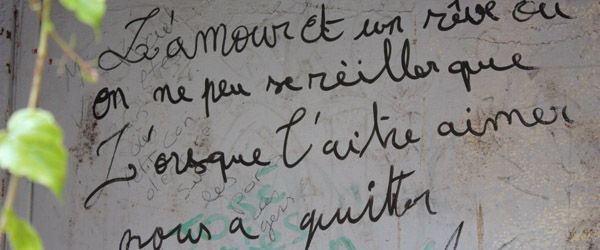 L'amour et un rêve ou
on ne peu se rèiller que
L'orsque l'aitre aimer
nous a quitter